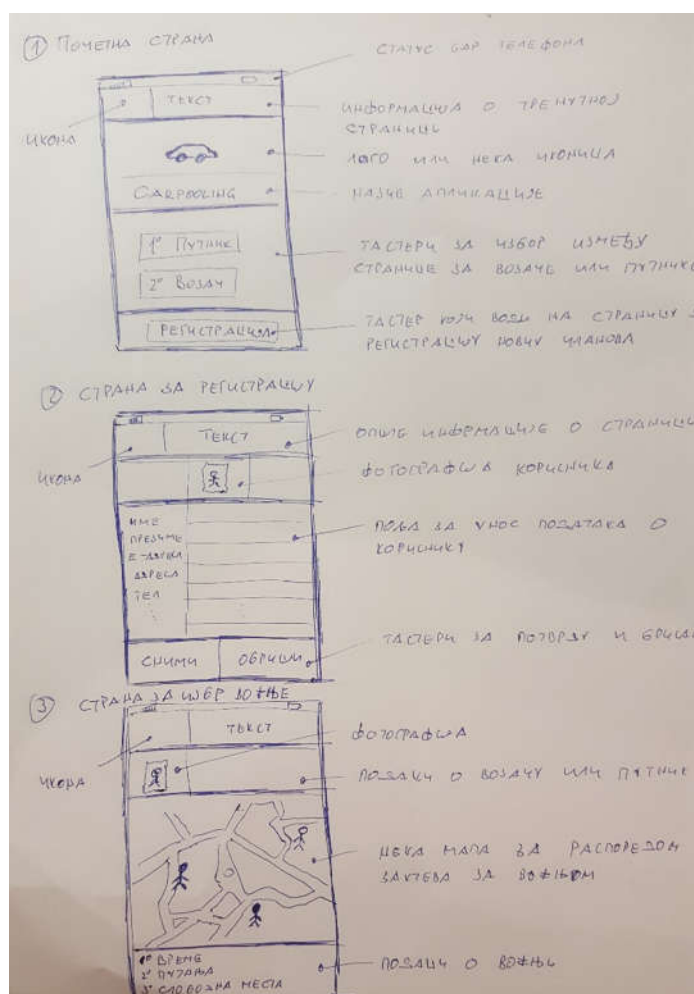 1 ПОЧЕТНА СТРАНА
СТАТУС БАР ТЕЛЕФОНА
ТЕКСТ
ИКОНА
ИНФОРМАЦИЈА О ТРЕНУТНОЈ
СТРАНИЦИ
ЛОГО ИЛИ НЕКА ИКОНИЦА
CARPOOLING
НАЗИВ АПЛИКАЦИЈЕ
1° ПУТНИК
2° ВОЗАЧ
ТАСТЕРИ ЗА ИЗБОР ИЗМЕЂУ
СТРАНИЦЕ ЗА ВОЗАЧЕ ИЛИ ПУТНИКЕ
РЕГИСТРАЦИЈА
ТАСТЕР КОЈИ ВОДИ НА СТРАНИЦУ
РЕГИСТРАЦИЈУ НОВИХ ЧЛАНОВА
2 СТРАНА ЗА РЕГИСТРАЦИЈУ
ТЕКСТ
ИКОНА
ОПШТЕ ИНФОРМАЦИЈЕ О СТРАНИЦИ
ФОТОГРАФИЈА КОРИСНИКА
ИМЕ
ПРЕЗИМЕ
Е-АДРЕСА
АДРЕСА
ТЕЛ
ПОЉА ЗА УНОС ПОДАТАКА О
КОРИСНИКУ
СНИМИ
ОБРИШИ
ТАСТЕРИ ЗА ПОТВРДУ И
3 СТРАНА ЗА ИЗБР ВОЖЊЕ
ТЕКСТ
ИКОНА
ФОТОГРАФИЈА
ПОДАЦИ О ВОЗАЧУ ИЛИ
НЕКА МАПА ЗА РАСПОРЕДОМ
ЗАХТЕВА ЗА ВОЖЊОМ
1° ВРЕМЕ
2° ПУТАЊА
3° СЛОБОДНА МЕСТА
ПОДАЦИ О ВОЖЊИ